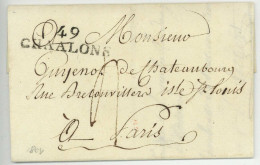 49
CHAALONS
Monsieur
de Chateaubourg
Rue Bretonvilliers isle St Louis
A Paris